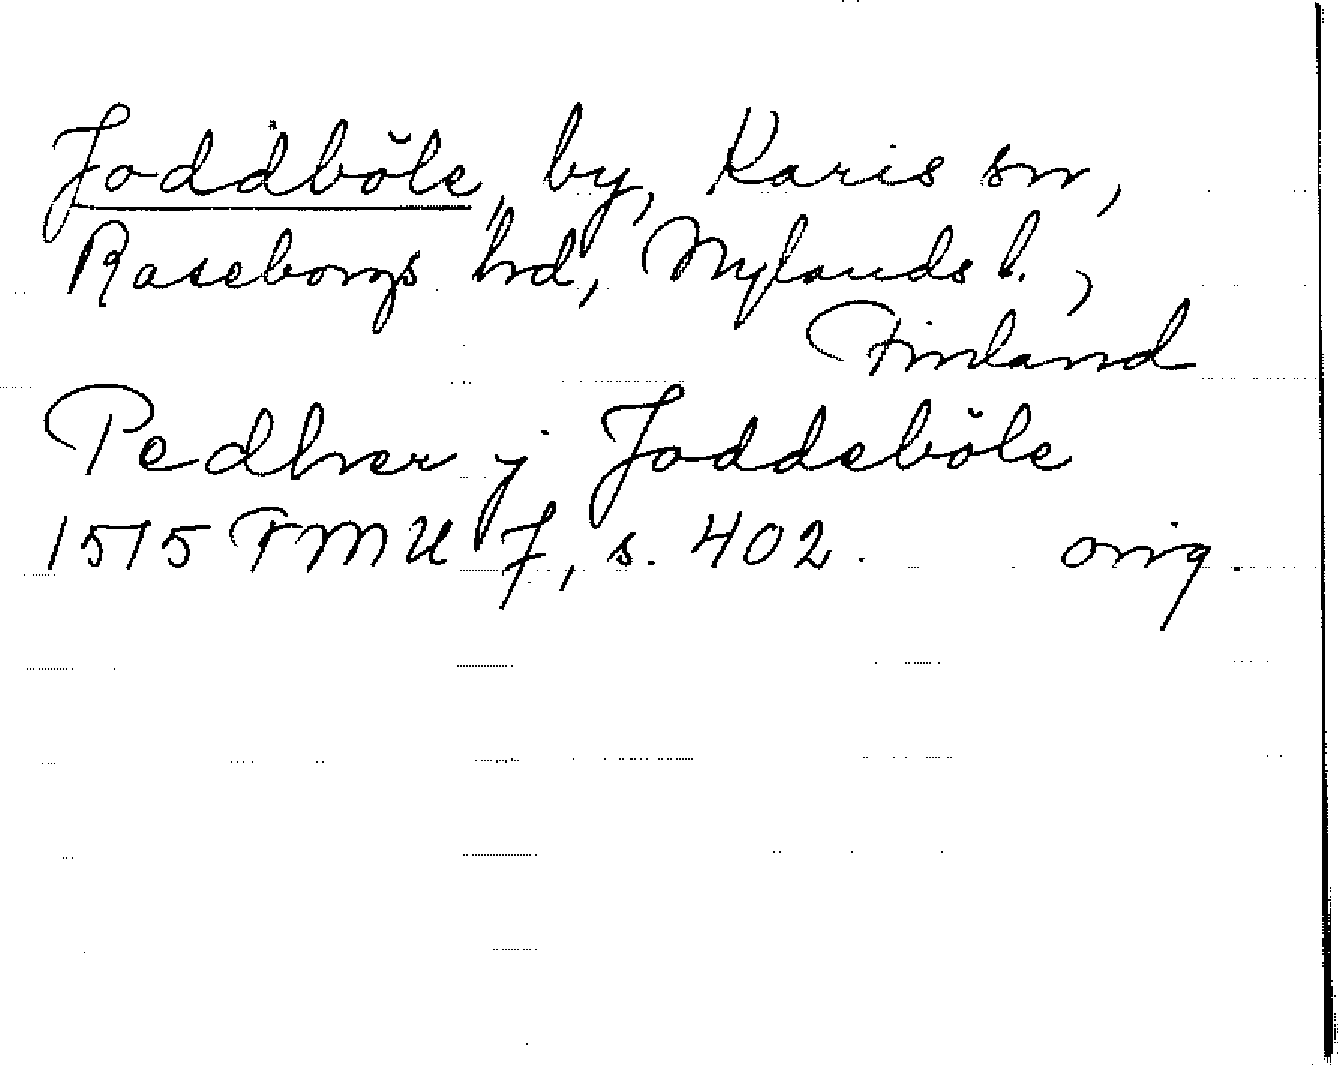 Joddböle, by, Karis sn,
Raseborgs hrd, Nylands l.,
Finland
Pedher j Joddeböle
1515 FMU 7, s. 402. orig.